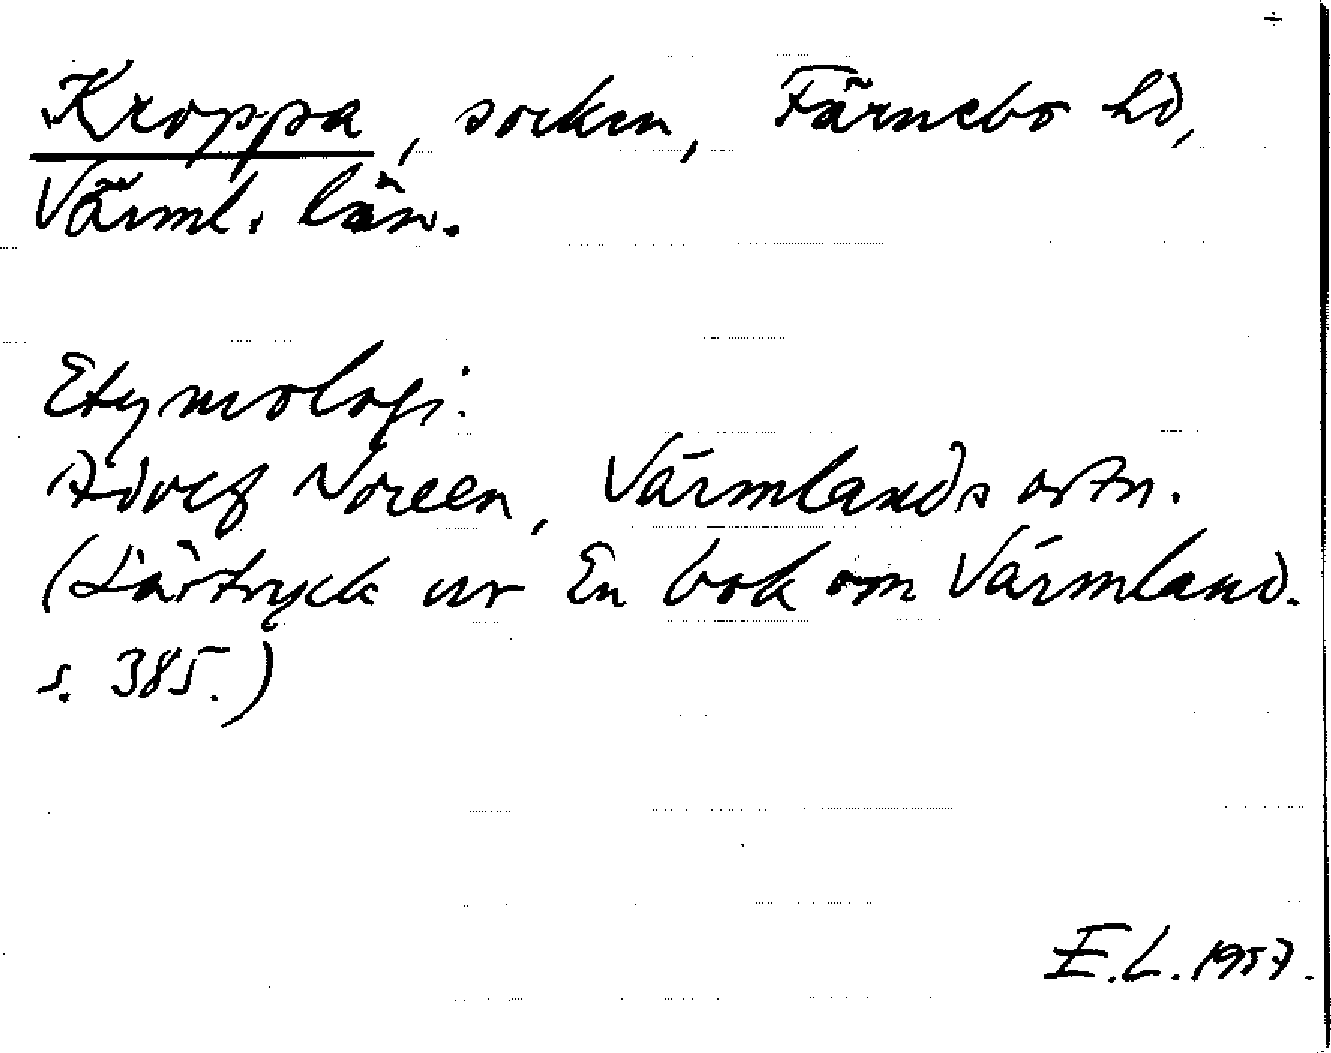 ÷
Kroppa, socken, Färnebo hd,
Värml. län.
Etymologi:
Adolf Noreen, Värmlands ortn.
(Särtryck ur En bok om Värmland.
s. 385.)
E.L. 1957.